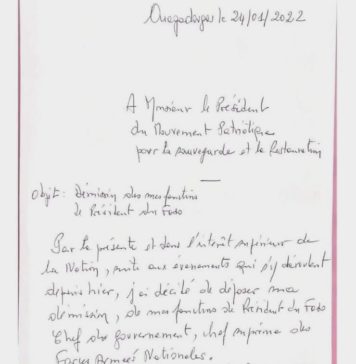 Ouagadougou le 24/01/2022
A Monsieur le Président
du Mouvement Patriotique
pour la sauvegarde et la Restauration
Objet : Démission des mes fonctions
de Président du Faso
Par la présente et dans l'intérêt supérieur de
la Nation, suite aux évenements qui s'y déroulent
depuis hier, j'ai décidé de déposer ma
démission, de mes fonctions de Président du Faso
Chef du gouvernement, chef suprême des
Forces Armées Nationales.